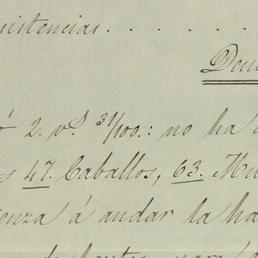 istencias. . . . . . .
ó 2. v.s 31/100.: no ha
s 47. Caballos, 63. Mu
enza á andar la ha